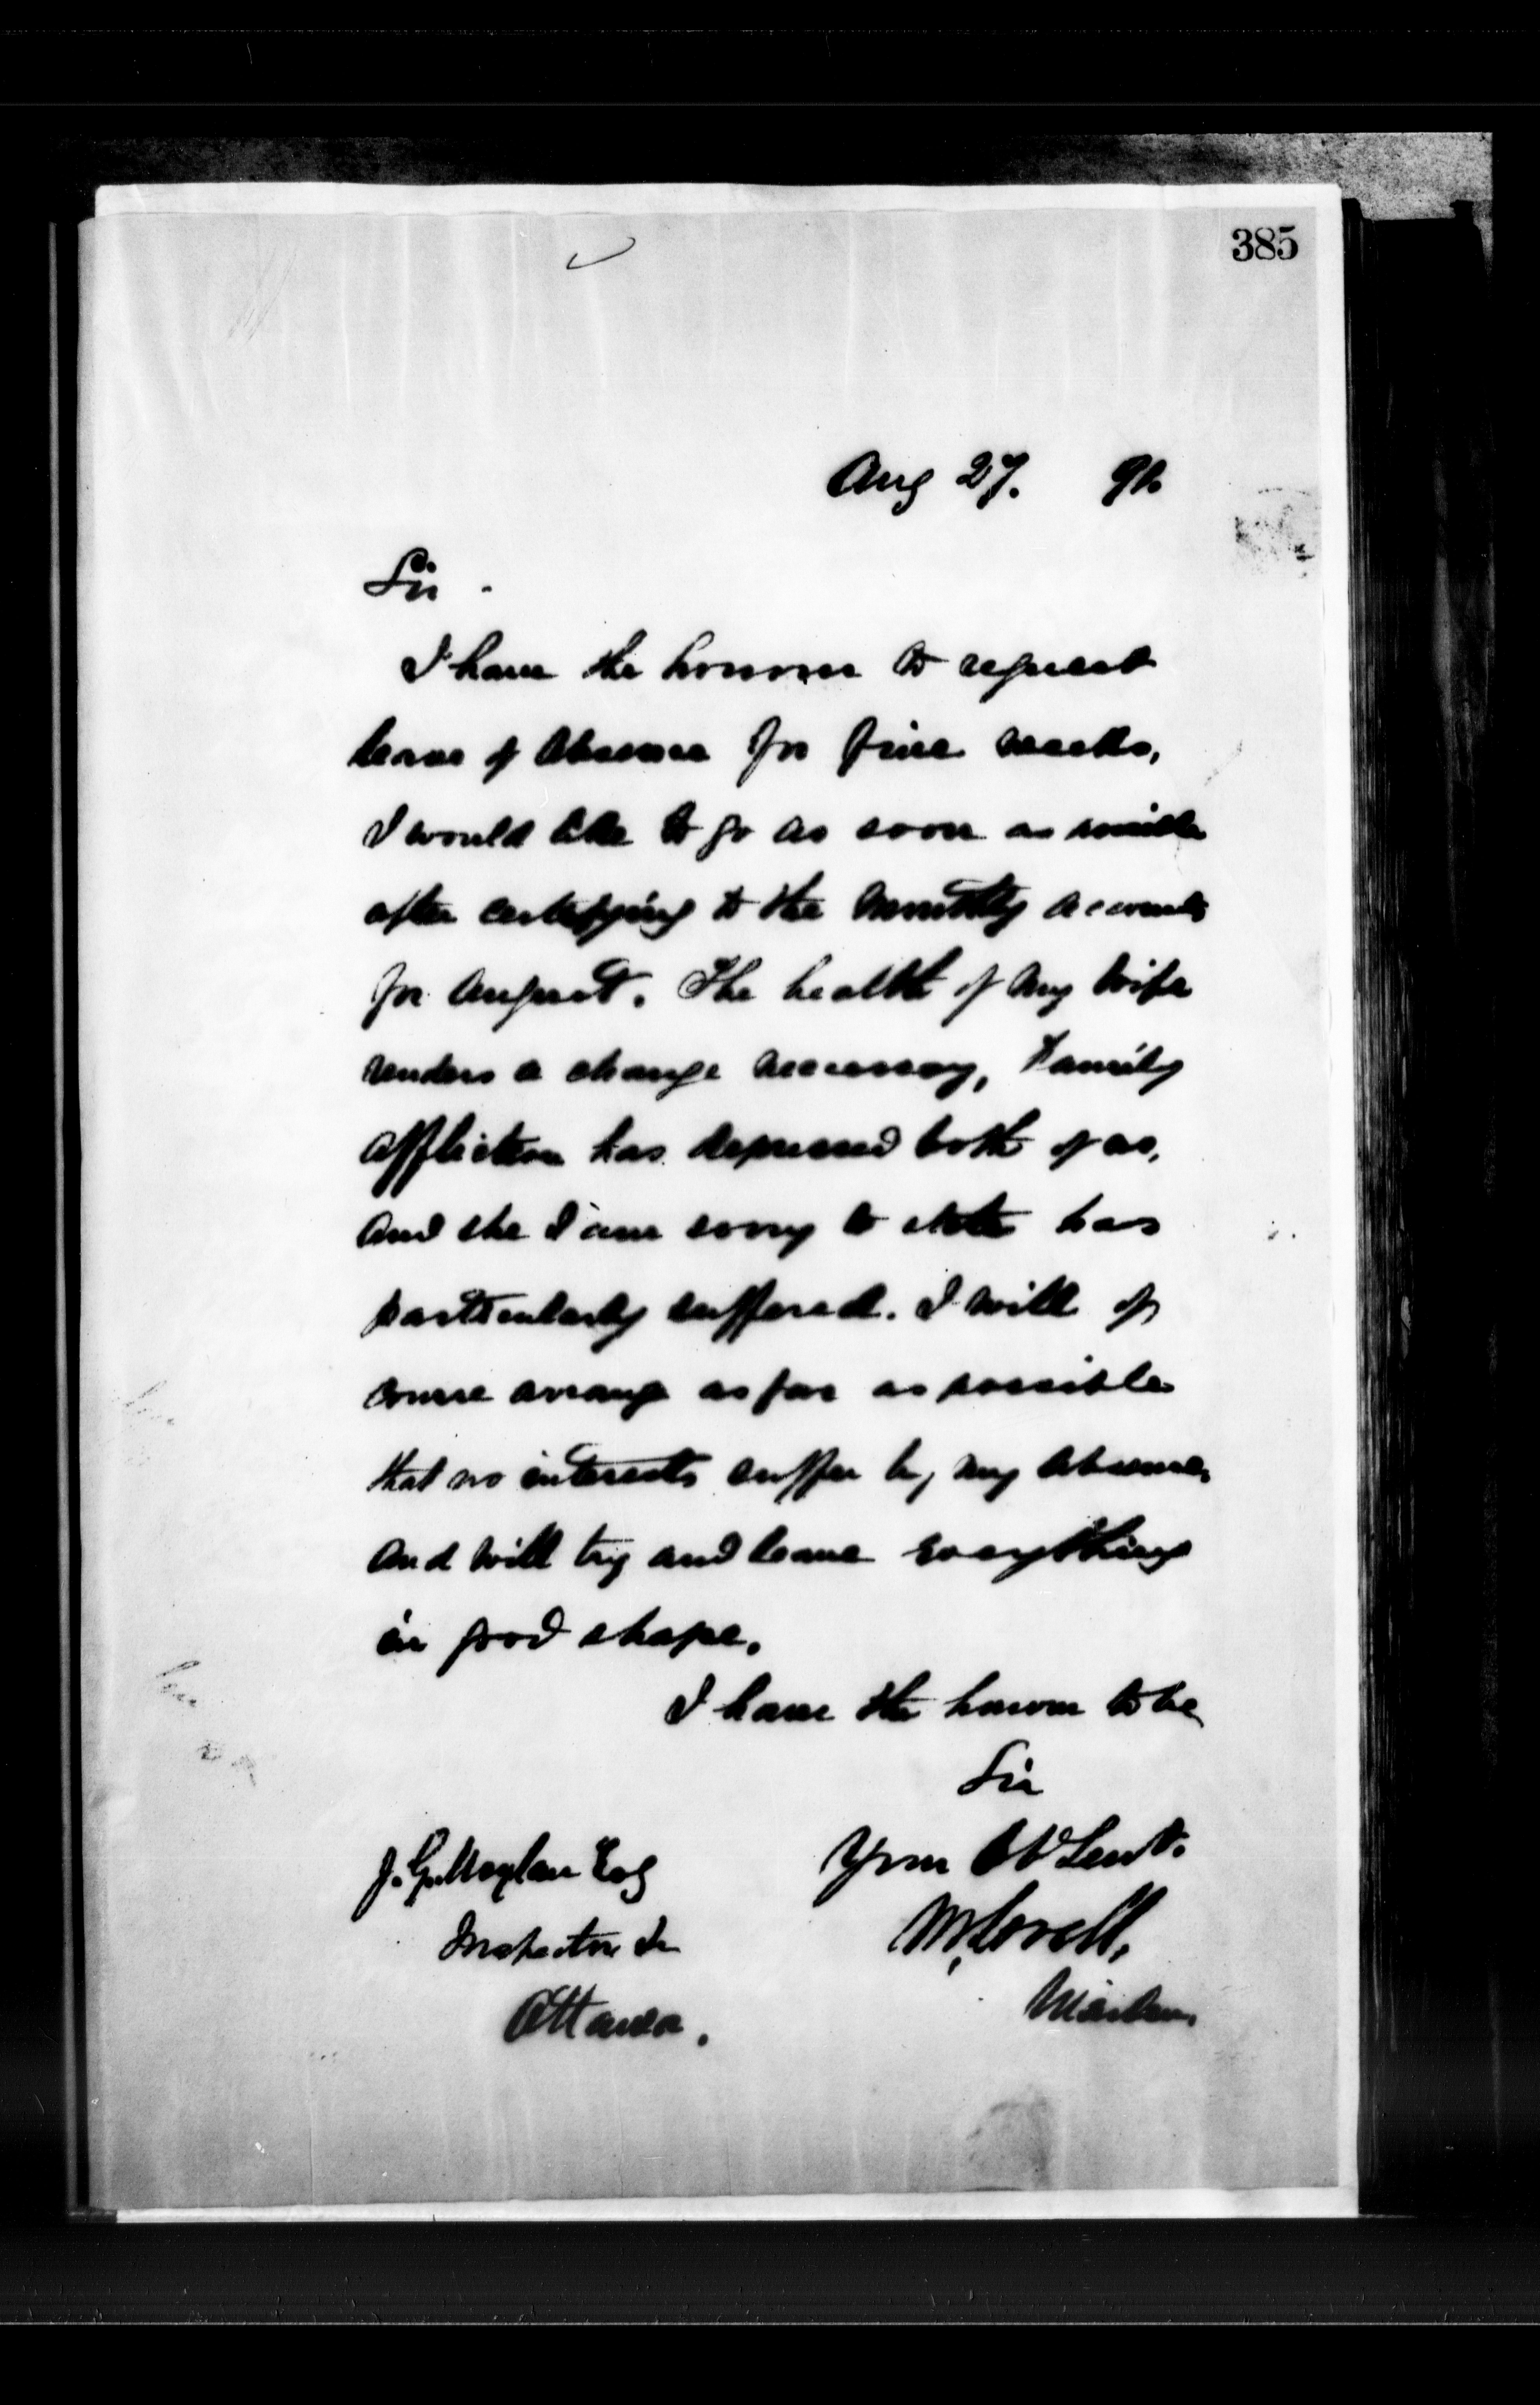 385
Aug 27. 91.
Sir -
I have the honour to request
leave of absence for five weeks,
I would like to go as soon as possible
after certifying to the monthly accounts
for August. The health of my wife
renders a change necessary, Family
affliction has depressed both of us,
and she I am sorry to state has
particularly suffered. I will of
course arrange as far as possible
that no interests suffer by my absence,
and will try and leave everything
in good shape.
I have the honour to be
Sir
Your Obt Servt.
J. G. Moylan Esq
Inspector
Ottawa.
Warden